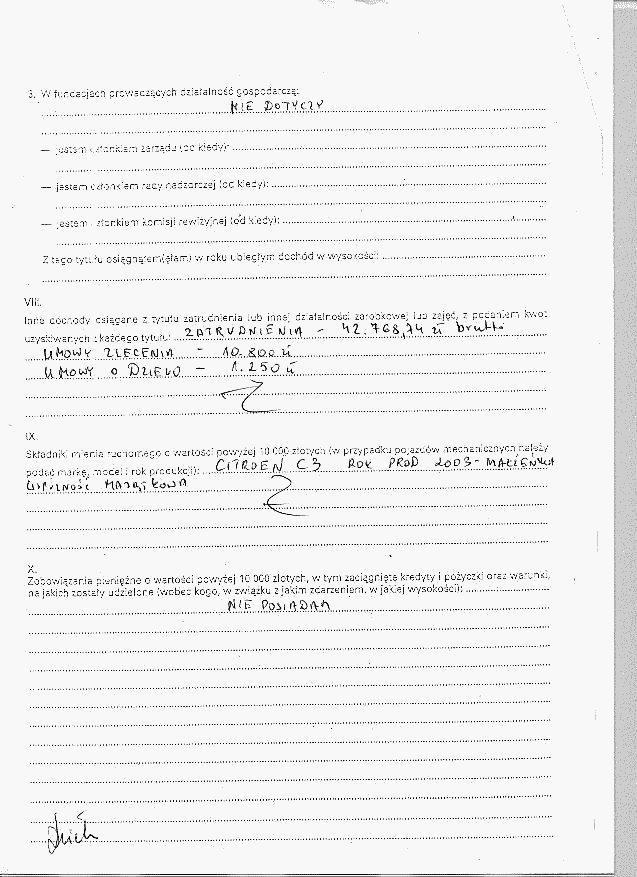 3. W fundacjach prowadzących działalność gospodarczą:
NIE DOTYCZY
— jestem członkiem zarządu (od kiedy):
— jestem członkiem rady nadzorczej (od kiedy):
— jestem członkiem komisji rewizyjnej (od kiedy):
Z tego tytułu osiągnąłem(ęłam) w roku ubiegłym dochód w wysokości:
VIII.
Inne dochody osiągane z tytułu zatrudnienia lub innej działalności zarobkowej lub zajęć, z podaniem kwot
uzyskiwanych z każdego tytułu: ZATRUDNIENIA - 42.768,74 zł brutto
UMOWY ZLECENIA - 10.800 zł
UMOWY O DZIEŁO - 1.250 zł
IX.
Składniki mienia ruchomego o wartości powyżej 10 000 złotych (w przypadku pojazdów mechanicznych należy
podać markę, model i rok produkcji): CITROEN C3 ROK PROD 2003 - MAŁŻEŃSKA
WSPÓLNOŚĆ MAJĄTKOWA
X.
Zobowiązania pieniężne o wartości powyżej 10 000 złotych, w tym zaciągnięte kredyty i pożyczki oraz warunki,
na jakich zostały udzielone (wobec kogo, w związku z jakim zdarzeniem, w jakiej wysokości):
NIE POSIADAM